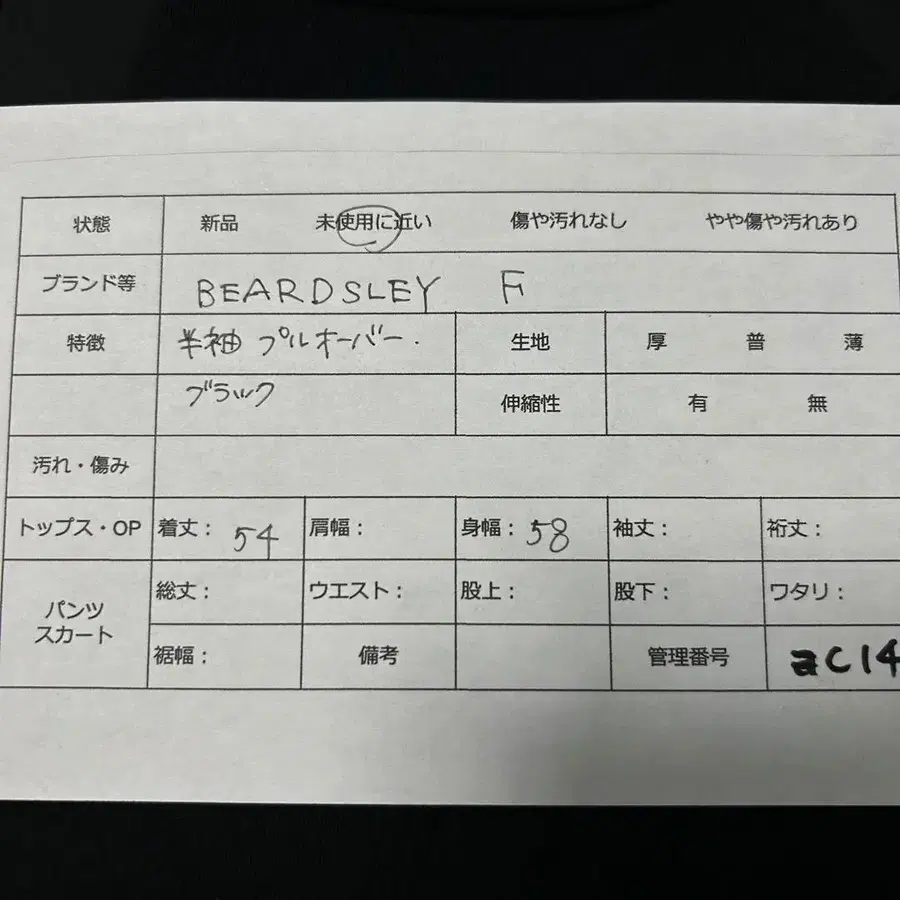 状態 新品 未使用に近い 傷や汚れなし やや傷や汚れあり
ブランド等 BEARDSLEY F
特徴 半袖 プルオーバー. 生地 厚 普 薄
ブラック 伸縮性 有 無
汚れ・傷み
トップス・OP 着丈: 54 肩幅: 身幅: 58 袖丈: 裄丈:
パンツ スカート 総丈: ウエスト: 股上: 股下: ワタリ:
裾幅: 備考 管理番号 ac14